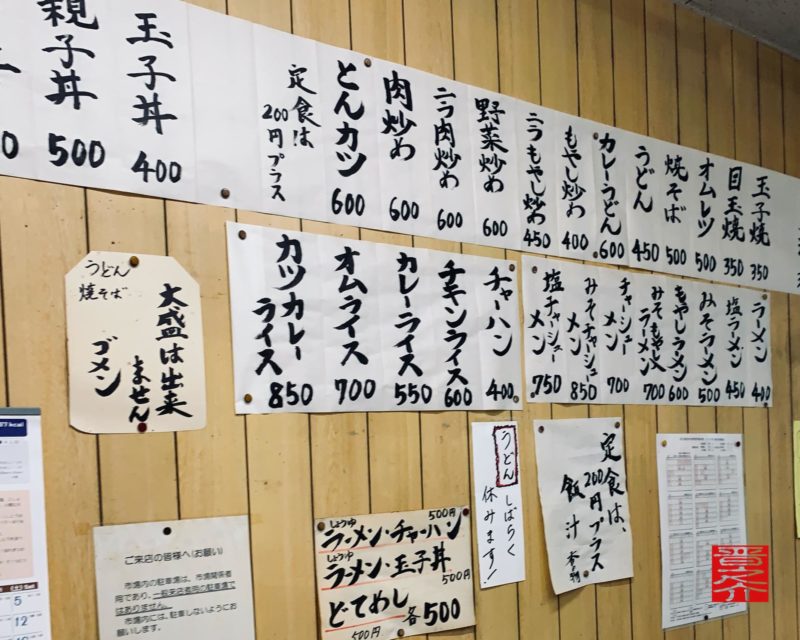 親子丼 500
玉子丼 400
定食は
200円プラス
とんカツ 600
肉炒め 600
ニラ肉炒め 600
野菜炒め 600
ニラもやし炒め 450
もやし炒め 400
カレーうどん 600
うどん 450
焼そば 500
オムレツ 500
目玉焼 350
玉子焼 350
カツカレーライス 850
オムライス 700
カレーライス 550
チキンライス 600
チャーハン 400
塩チャーシューメン 750
みそチャーシューメン 850
チャーシューメン 700
みそもやしラーメン 700
もやしラーメン 600
みそラーメン 500
塩ラーメン 450
ラーメン 400
うどん
焼そば
大盛は出来
ません
ゴメン
うどん しばらく
休みます!
定食は、
200円プラス
飯 汁
しょうゆ 500円
ラーメン・チャーハン
しょうゆ
ラーメン・玉子丼
500円
どてめし 各500
500円
ご来店の皆様へ(お願い)
市場内の駐車場は、市場関係者
用であり、一般来店者用の駐車場で
はありません。
市場内には、駐車しないようにお
願いします。
5
12
晋之介